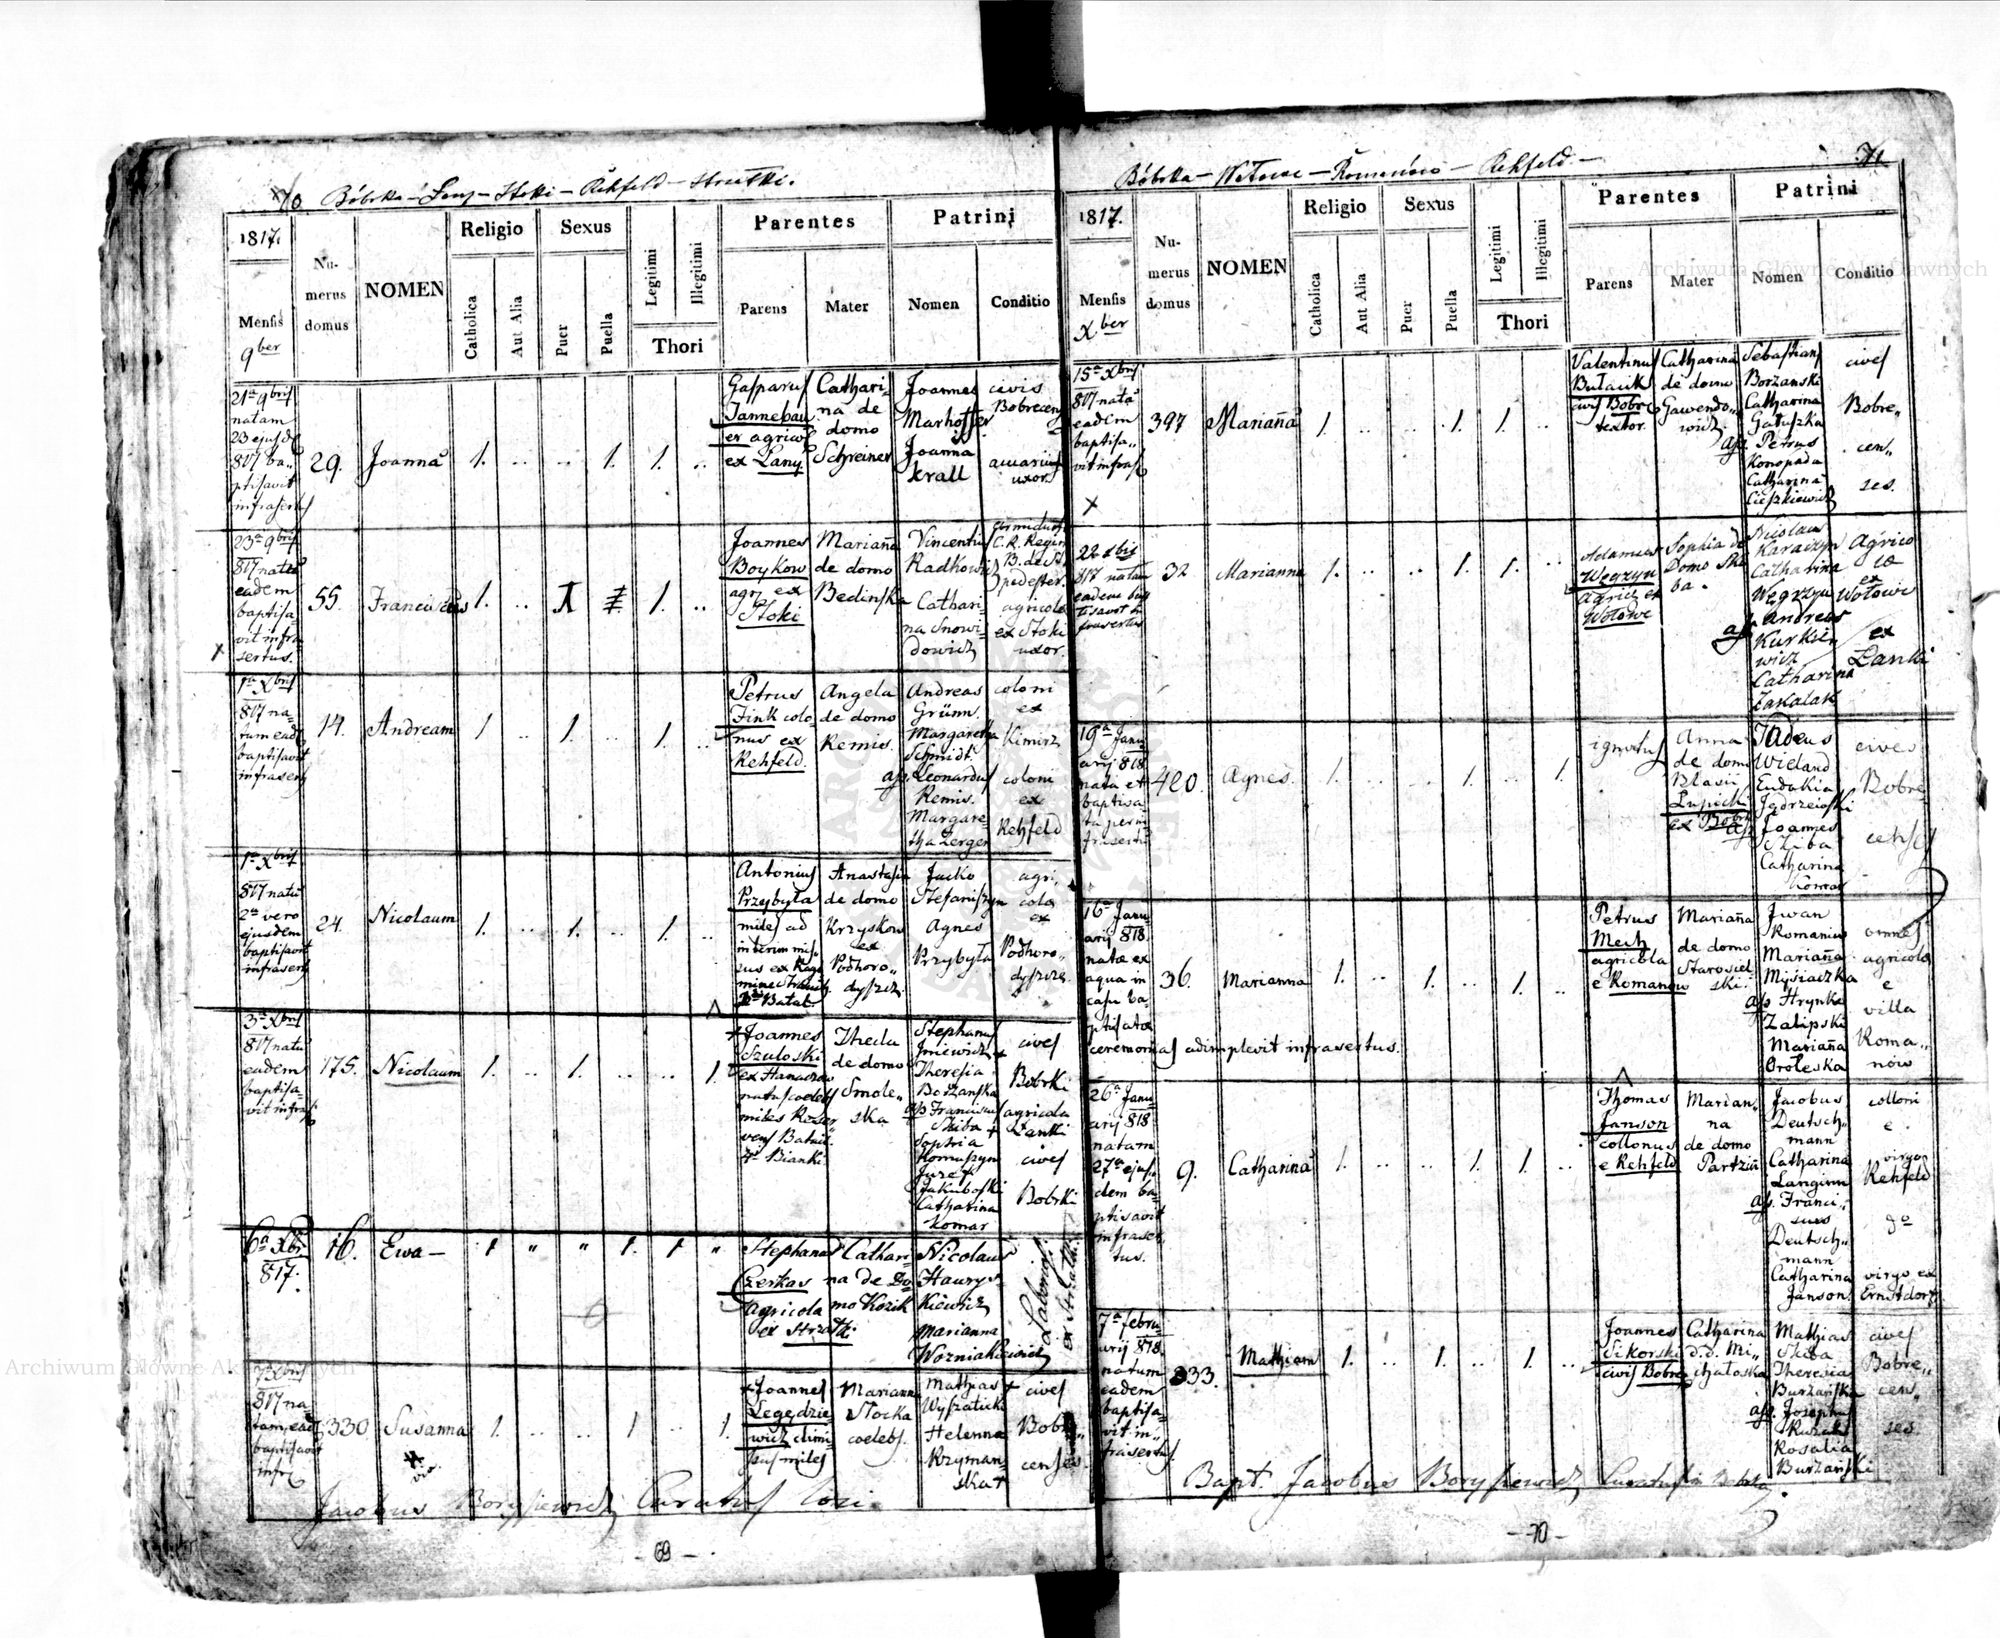 70 Bóbrka - Łany - Stoki - Rehfeld - Strzałki.
1817.
Mensis
9ber
Numerus
domus
NOMEN
Religio
Catholica
Aut Alia
Sexus
Puer
Puella
Legitimi
Illegitimi
Thori
Parentes
Parens
Mater
Patrini
Nomen
Conditio
21a 9bris
natam
23 ejusd
817 ba„
ptisavit
infrasertus
29.
Joanna
1. .. .. 1. 1. ..
Gasparus
Tannebau
er agricol
ex Łany
Cathari-
na de
domo
Schreiner
Joannes
Marhoffer
Joanna
Krall
civis
Bobrecen
uxor.
23a 9bris
817 natus
eadem
baptisa-
vit infra
sertus.
55.
Franciscus
1. .. 1. ..
Joannes
Boykow
agr. ex
Stoki
Marianna
de domo
Bedinska
Vincentius
Radkowicz
Cathari-
na Snowi-
dowicz
C. R. Regim
pedester.
agricola
ex Stoki
uxor.
1a Xbris
817 na-
tum ead
baptisavit
infrasert
14.
Andream
1 .. 1. .. 1. ..
Petrus
Fink colo-
nus ex
Rehfeld.
Angela
de domo
Remis.
Andreas
Grünn.
Margaretha
Schmidt.
ass. Leonardus
Remis.
Margare-
tha Lerger
coloni
ex
Kimirz
coloni
ex
Rehfeld
1a Xbris
817 natu
2a vero
ejusdem
baptisavit
infrasert
24.
Nicolaum
1. .. 1. .. 1. ..
Antonius
Przybyła
miles ad
interim mis„
sus ex Regi
mine
Batal.
Anastasia
de domo
Krzyskow
ex
Podhoro„
dyszcz.
Jacko
Stefaniszyn
Agnes
Przybyła
agri,
cola
ex
Podhoro„
dyszcze
3a Xbris
817 natu
eadem
baptisa-
vit infras
175.
Nicolaum
1. .. 1. .. .. 1.
Joannes
Szuloski
ex Hanaczow
natus coelebs
miles Reser
ves Batali
Bianki.
Thecla
de domo
Smole„
ska
Stephanus
Jniewicz
Theresia
Borzanska
ass Franciscus
Skiba
Sophia
Homuszyn
Jozef
Jakuboski
Catharina
Komar
cives
Bobrki
agricola
Łanki
cives
Bobrki
6a Xbr
817.
16.
Ewa —
1 „ „ 1. 1 „
Stephanus
Czerkas
agricola
ex Strzałki
Cathari
na de Do
mo Kozik
Nicolaus
Hawrys-
kiewicz
Marianna
Wozniakiewicz
Labories
ex Strzałki
7 Xbris
817 na-
tam, ead
baptisavit
infr
330
Susanna
1. .. .. 1 .. 1.
Joannes
Legędzie
wicz dimi
ssus miles
Marianna
Stocka
coelebs.
Mathias
Wyszaticki
Helenna
Krzyman-
ska
cives
Bobre„
censes.
Jacobus Boryssiewicz Curatus Loci.
- 69 -
Bóbrka - Wołowe - Romanów - Rehfeld -
71
1817.
Mensis
Xber
Numerus
domus
NOMEN
Religio
Catholica
Aut Alia
Sexus
Puer
Puella
Legitimi
Illegitimi
Thori
Parentes
Parens
Mater
Patrini
Nomen
Conditio
15a Xbris
817 nata
eadem
baptisa„
vit infras
X
397
Marianna
1. .. .. 1. 1. ..
Valentinus
Butaiik
civis Bobre
textor.
Catharina
de domo
Gawendo„
wicz.
Sebastians
Borzanski
Catharina
Gałuszka
ass. Petrus
Konopada
Catharina
Cieszkiewicz
cives
Bobre„
cen„
ses.
22 xbis
817 natam
eadem bap
tisavit in
frasertus
32
Marianna
1. .. .. 1. 1. ..
Adamus
Węgrzyn
agric ex
Wołowe
Sophia de
Domo Ski
ba.
Nicolaus
Karaczyn
Catharina
Węgrzyn
ass. Andreas
Kurkie
wicz
Catharina
Zakalak
Agrico
læ
ex
Wołowe
ex
Łanki
19a Janu
arij 818
nata et
baptisa
ta per in
frasertu
420.
Agnes.
1. .. .. 1. .. 1.
ignotus
Anna
de domo
Blasii
Łupicki
ex Bobr
Tadeus
Wieland
Eudokia
Jgorzeioski
ass Joannes
Skiba
Catharina
Komar
cives
Bobre„
censes
16a Janu
arij 818.
natæ ex
aqua in
casu ba„
ptisatæ
ceremonias adimplevit infrasertus.
36.
Marianna
1. .. 1. .. 1. ..
Petrus
Mech
agricola
e Romanow
Marianna
de domo
Starosiel
ski.
Jwan
Romaniw
Marianna
Mysiaczka
ass Hrynko
Zalipski
Marianna
Oroleska
omnes
agricola
e
villa
Roma„
nów
26a Janu
arij 818
natam
27a ejus„
dem ba„
ptisavit
infraser
tus.
9.
Catharina
1. .. .. 1. 1. ..
Thomas
Janson
collonus
e Rehfeld
Marian„
na
de domo
Partzin
Jacobus
Deutsch„
mann
Catharina
Langinn
ass. Franci„
scus
Deutsch„
mann
Catharina
Janson
colloni
e
virgo
Rehfeld
do
virgo ex
Ernstdorf
7a febru
arij 818.
natum
eadem
baptisa-
vit in„
frasertus.
333.
Mathiam
1. .. 1. .. 1. ..
Joannes
Sikorski
civis Bobre
Catharina
d.d. Mi„
chałoska
Mathias
Skiba
Theresia
Burzańska
ass. Josephus
Rosalia
Burzański
cives
Bobre„
cen„
ses.
Bapt. Jacobus Boryssiewicz Curatus
- 70 -
Archiwum Główne Akt Dawnych
Archiwum Główne Akt Dawnych